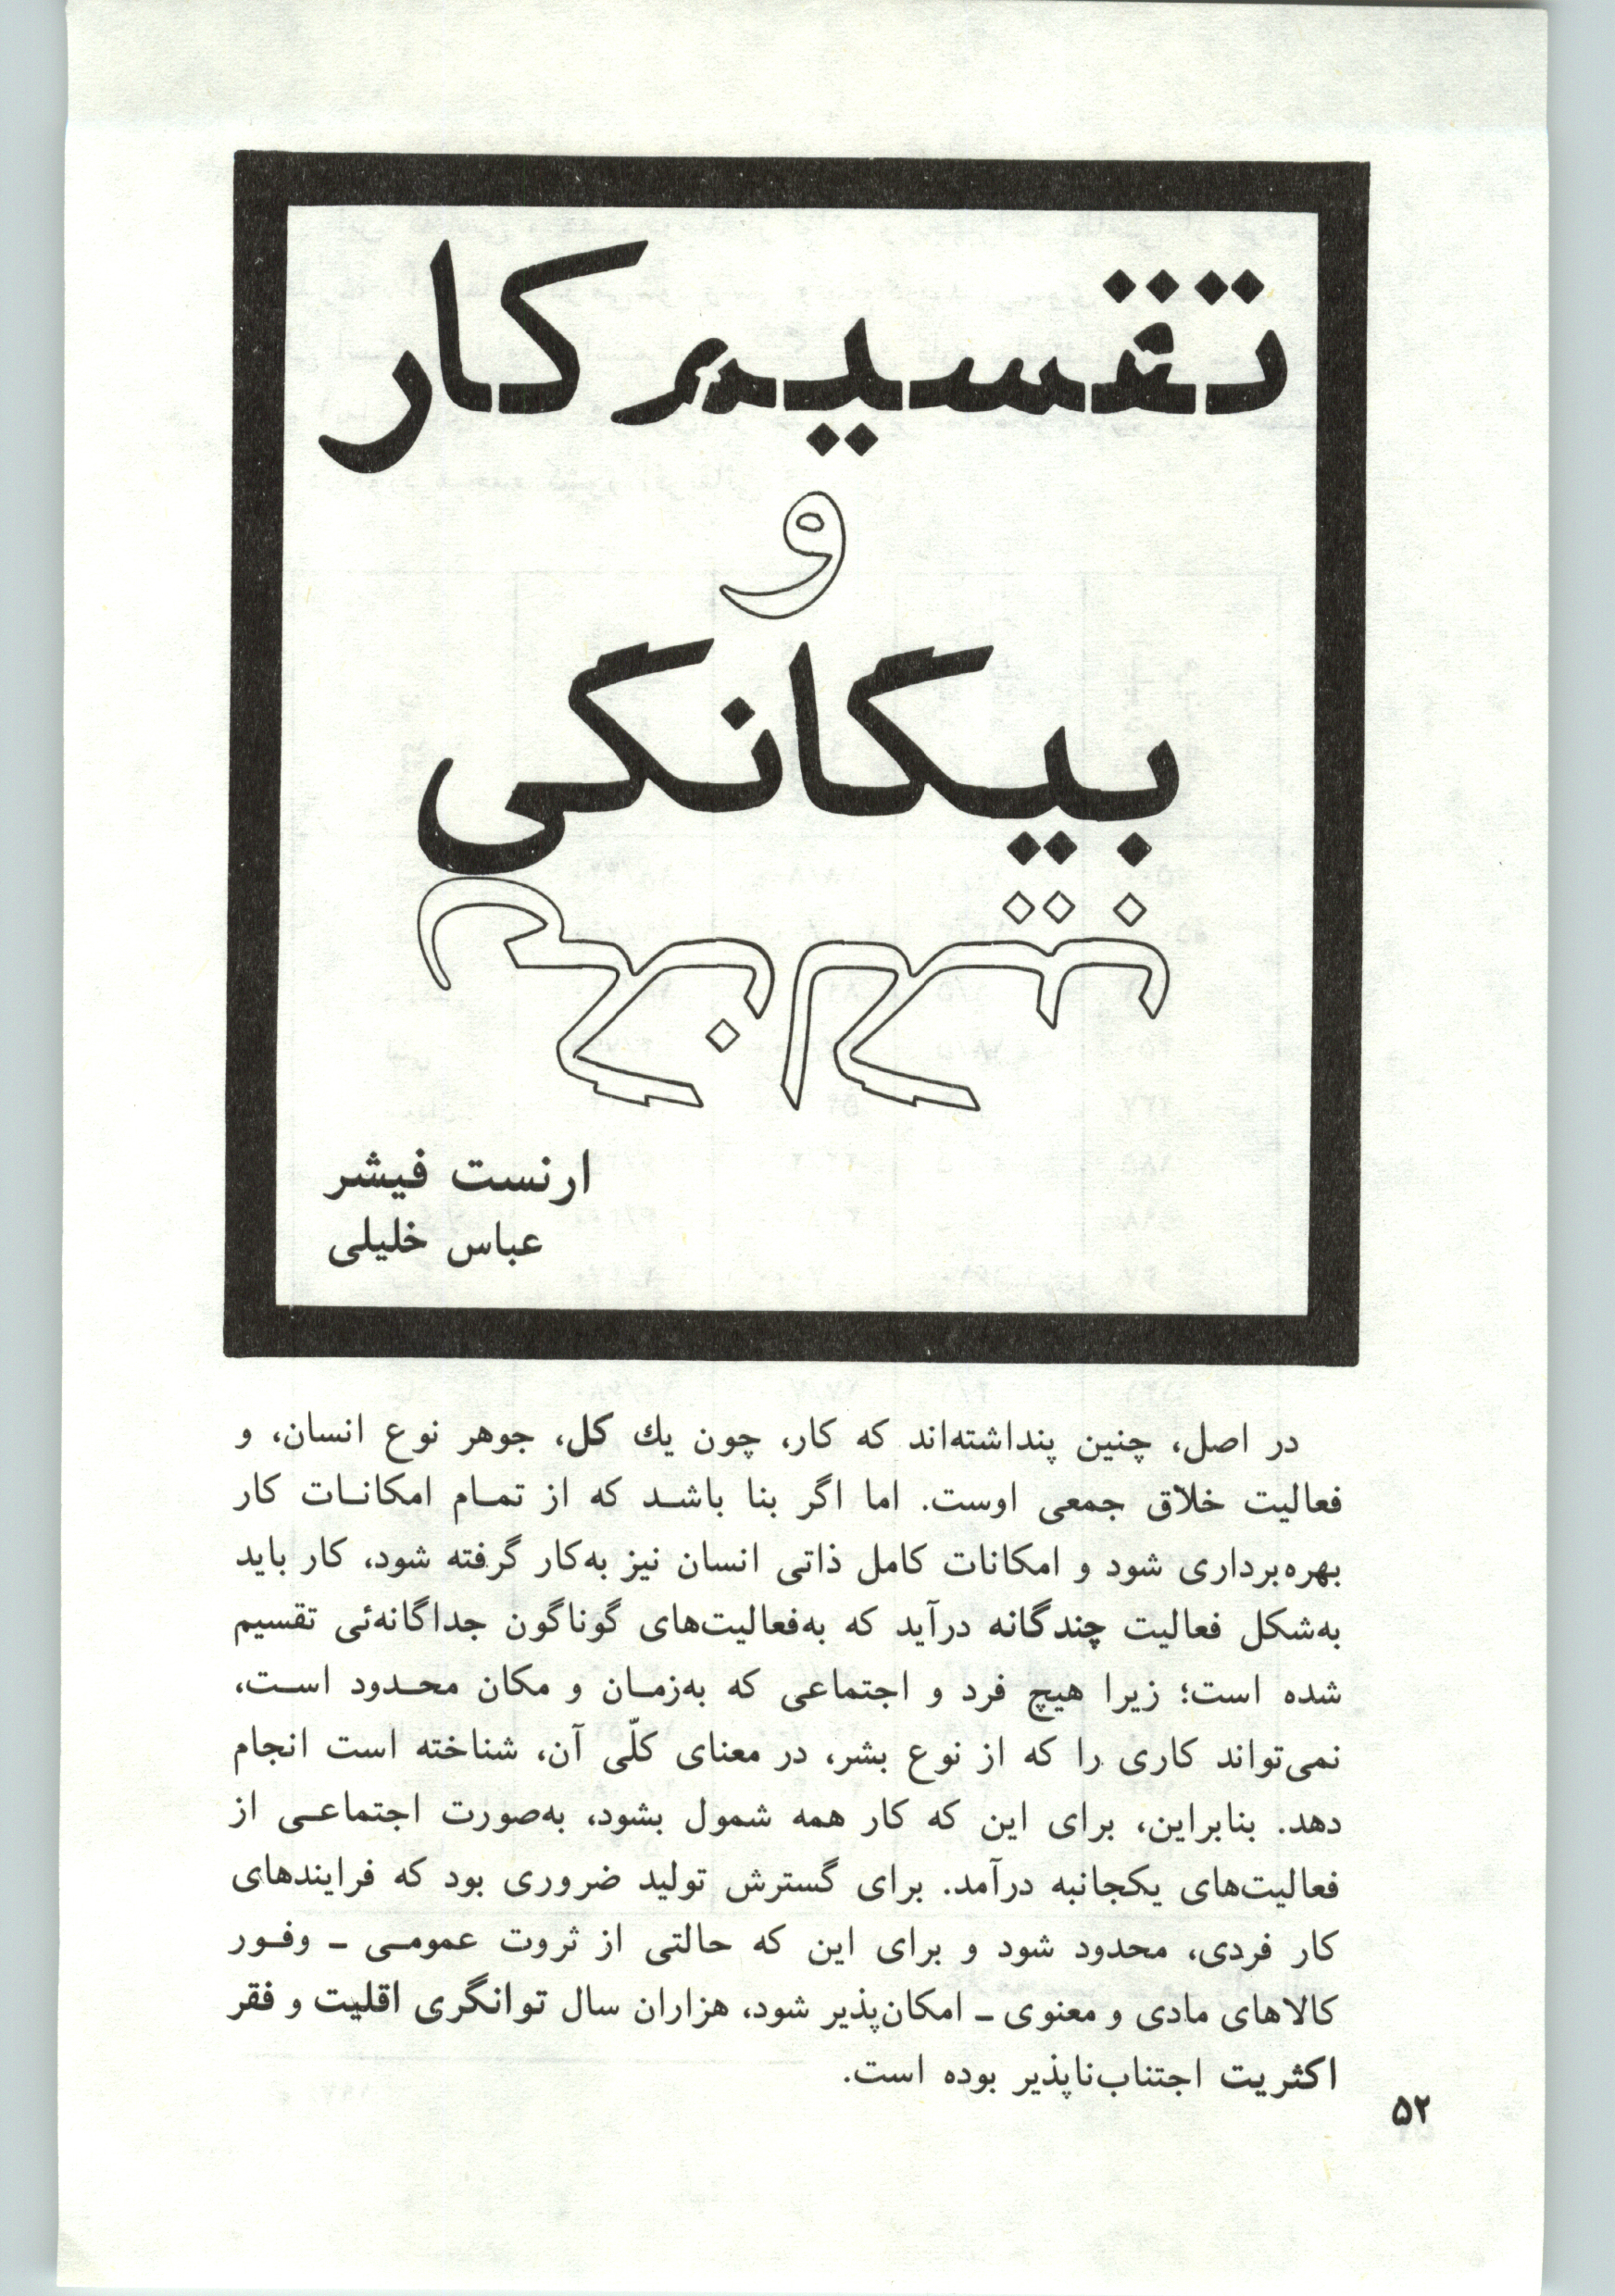 تقسیم کار
و
بیگانگی
ارنست فیشر
عباس خلیلی
در اصل، چنین پنداشته‌اند که کار، چون یك کل، جوهر نوع انسان، و
فعالیت خلاق جمعی اوست. اما اگر بنا باشد که از تمام امکانات کار
بهره‌برداری شود و امکانات کامل ذاتی انسان نیز به‌کار گرفته شود، کار باید
به‌شکل فعالیت چندگانه درآید که به‌فعالیت‌های گوناگون جداگانه‌ئی تقسیم
شده است؛ زیرا هیچ فرد و اجتماعی که به‌زمان و مکان محدود است،
نمی‌تواند کاری را که از نوع بشر، در معنای کلّی آن، شناخته است انجام
دهد. بنابراین، برای این که کار همه شمول بشود، به‌صورت اجتماعی از
فعالیت‌های یکجانبه درآمد. برای گسترش تولید ضروری بود که فرایندهای
کار فردی، محدود شود و برای این که حالتی از ثروت عمومی ـ وفور
کالاهای مادی و معنوی ـ امکان‌پذیر شود، هزاران سال توانگری اقلیت و فقر
اکثریت اجتناب‌ناپذیر بوده است.
۵۲